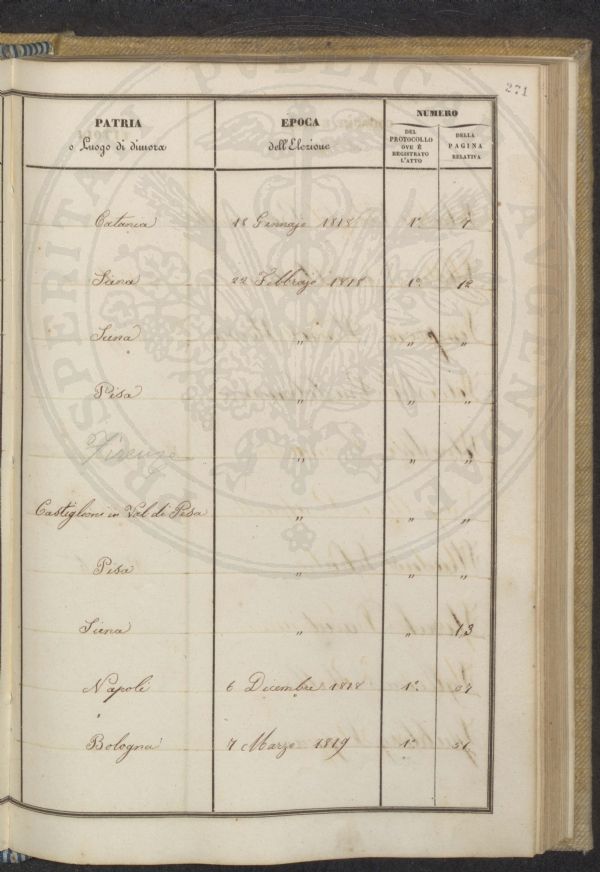 271
PATRIA
o Luogo di dimora
EPOCA
dell'Elezione
NUMERO
DEL
PROTOCOLLO
OVE È
REGISTRATO
L'ATTO
DELLA
PAGINA
RELATIVA
Catania 18 Gennajo 1818 1º 7
Siena 22 Febbrajo 1818 1º 12
Siena " " "
Pisa " " "
Firenze " " "
Castiglioni in Val di Pesa " " "
Pisa " " "
Siena " " 13
Napoli 6 Decembre 1818 1º
Bologna 7 Marzo 1819 1º 51
PROSPERITATI PUBLICAE AUGENDAE